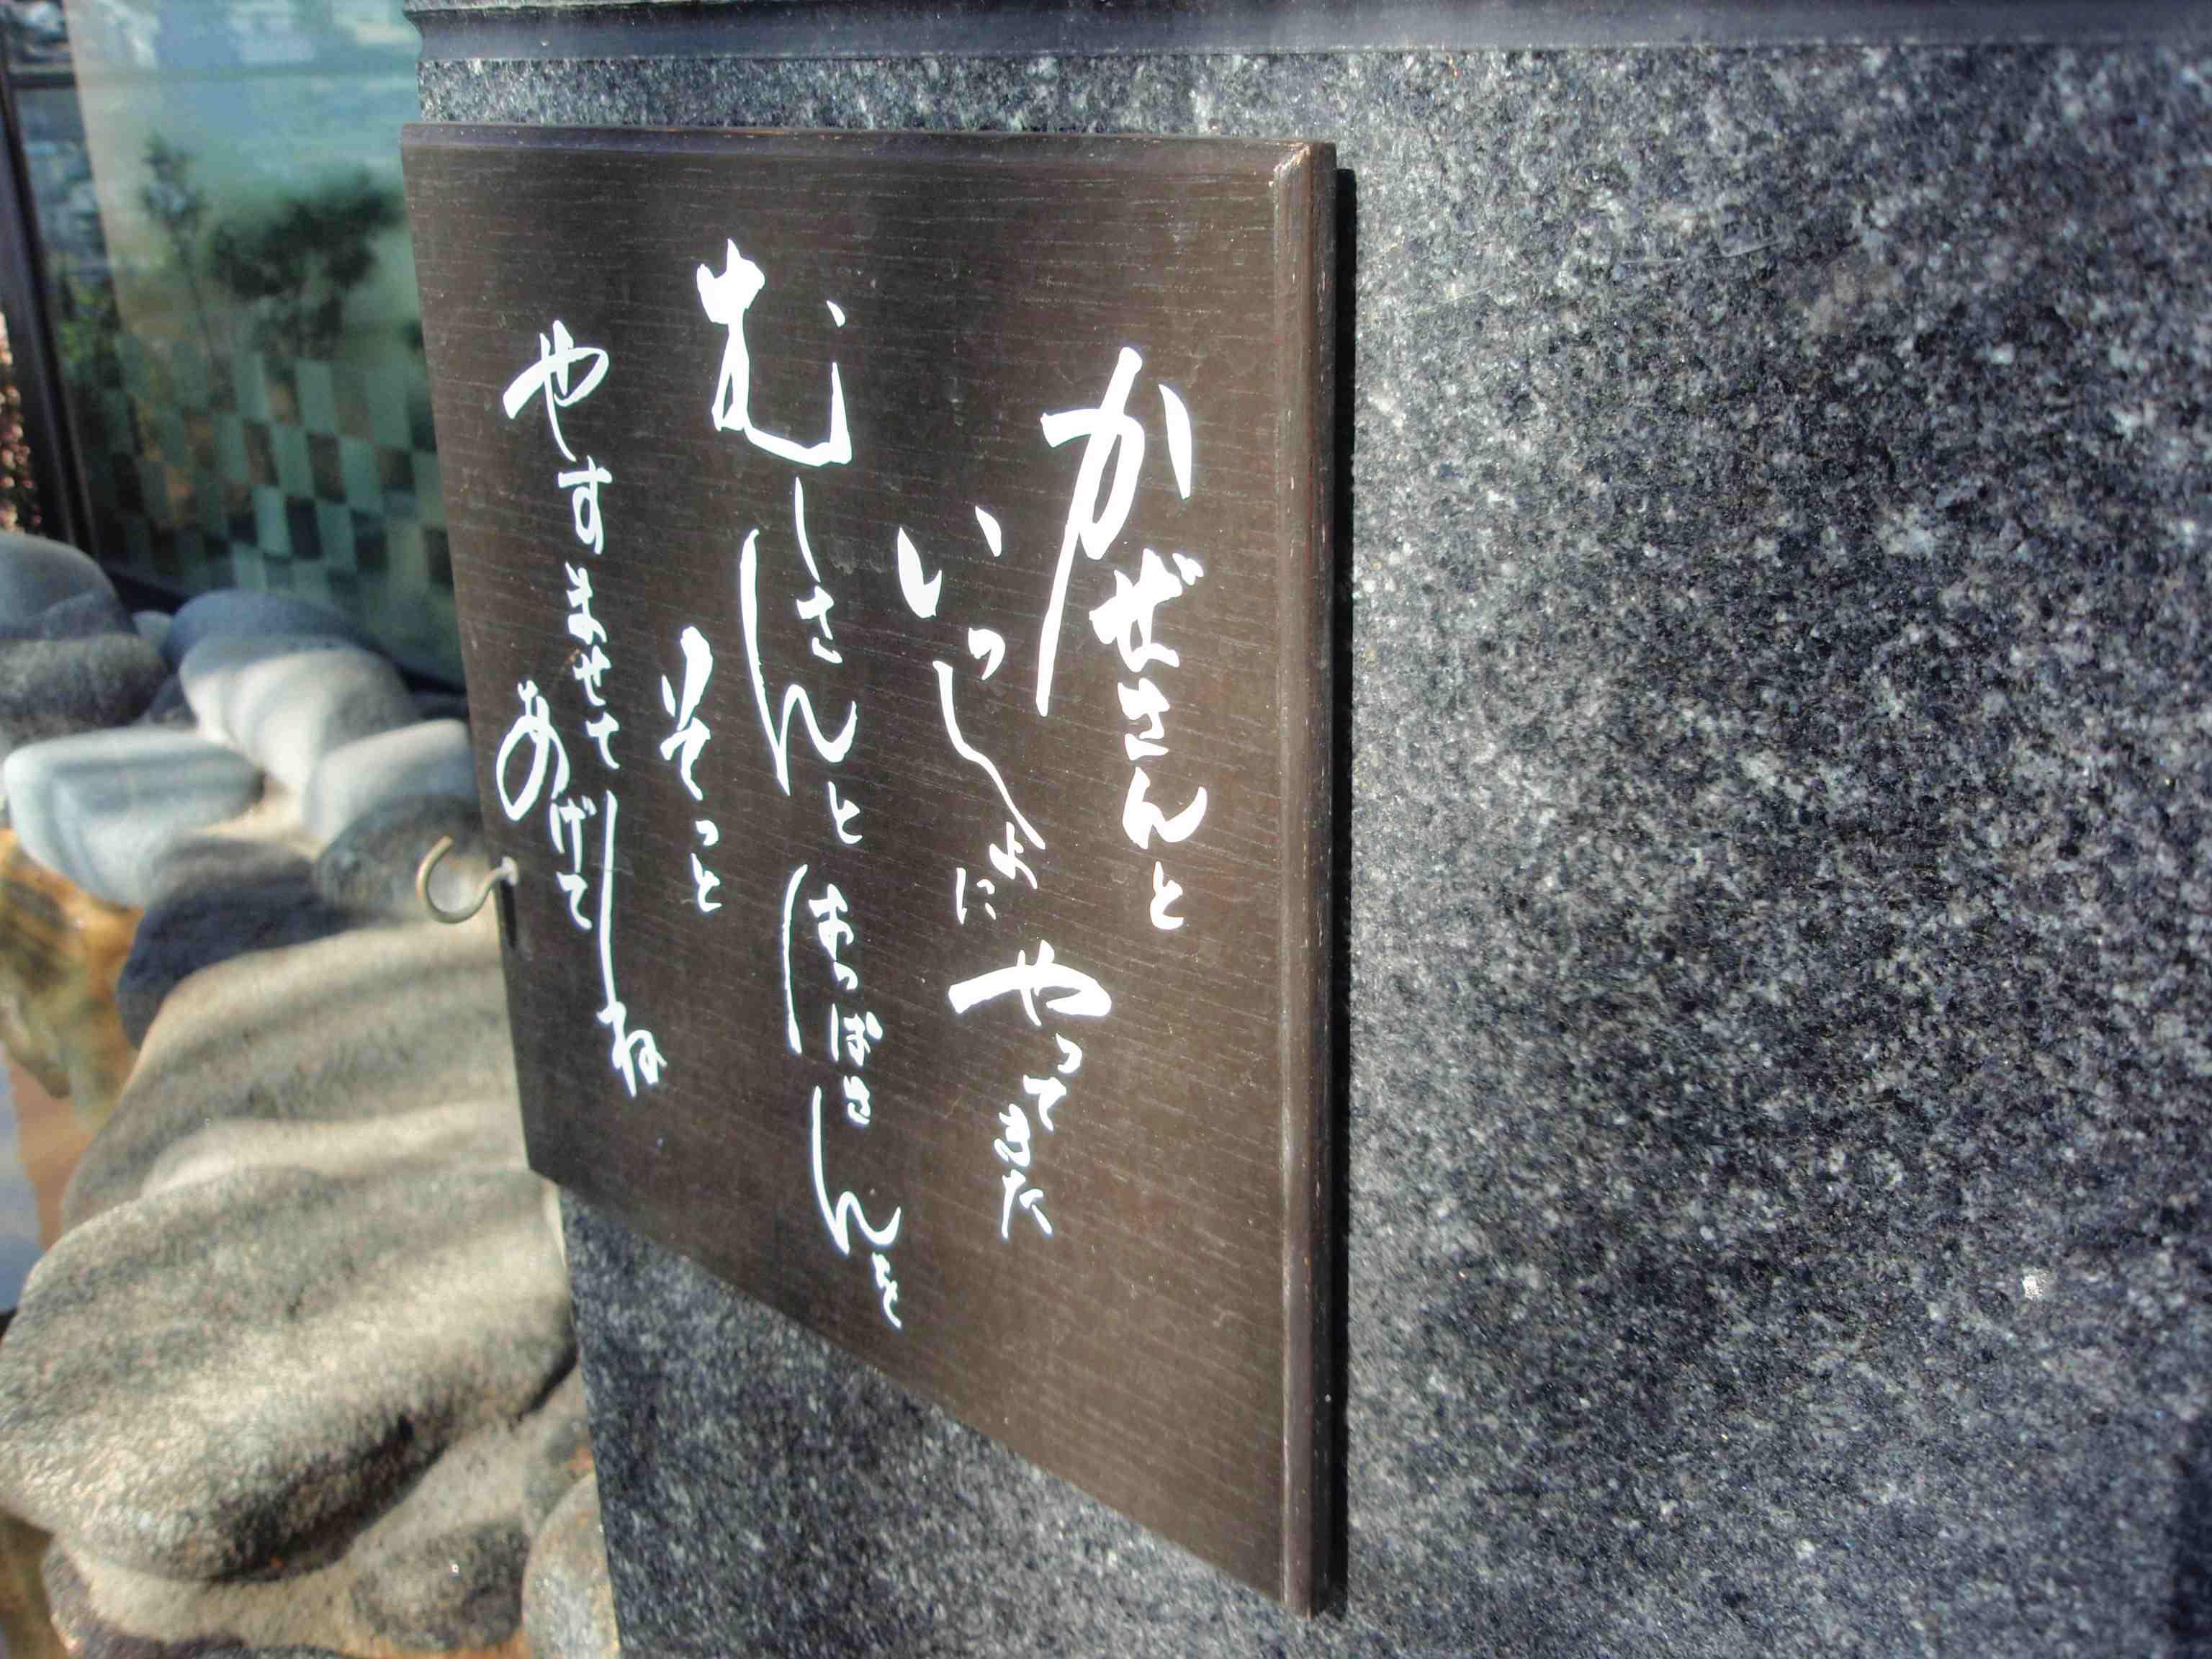 かぜさんと
いっしょに やってきた
むしさんと はっぱさんを
そっと
やすませて
あげて
しね